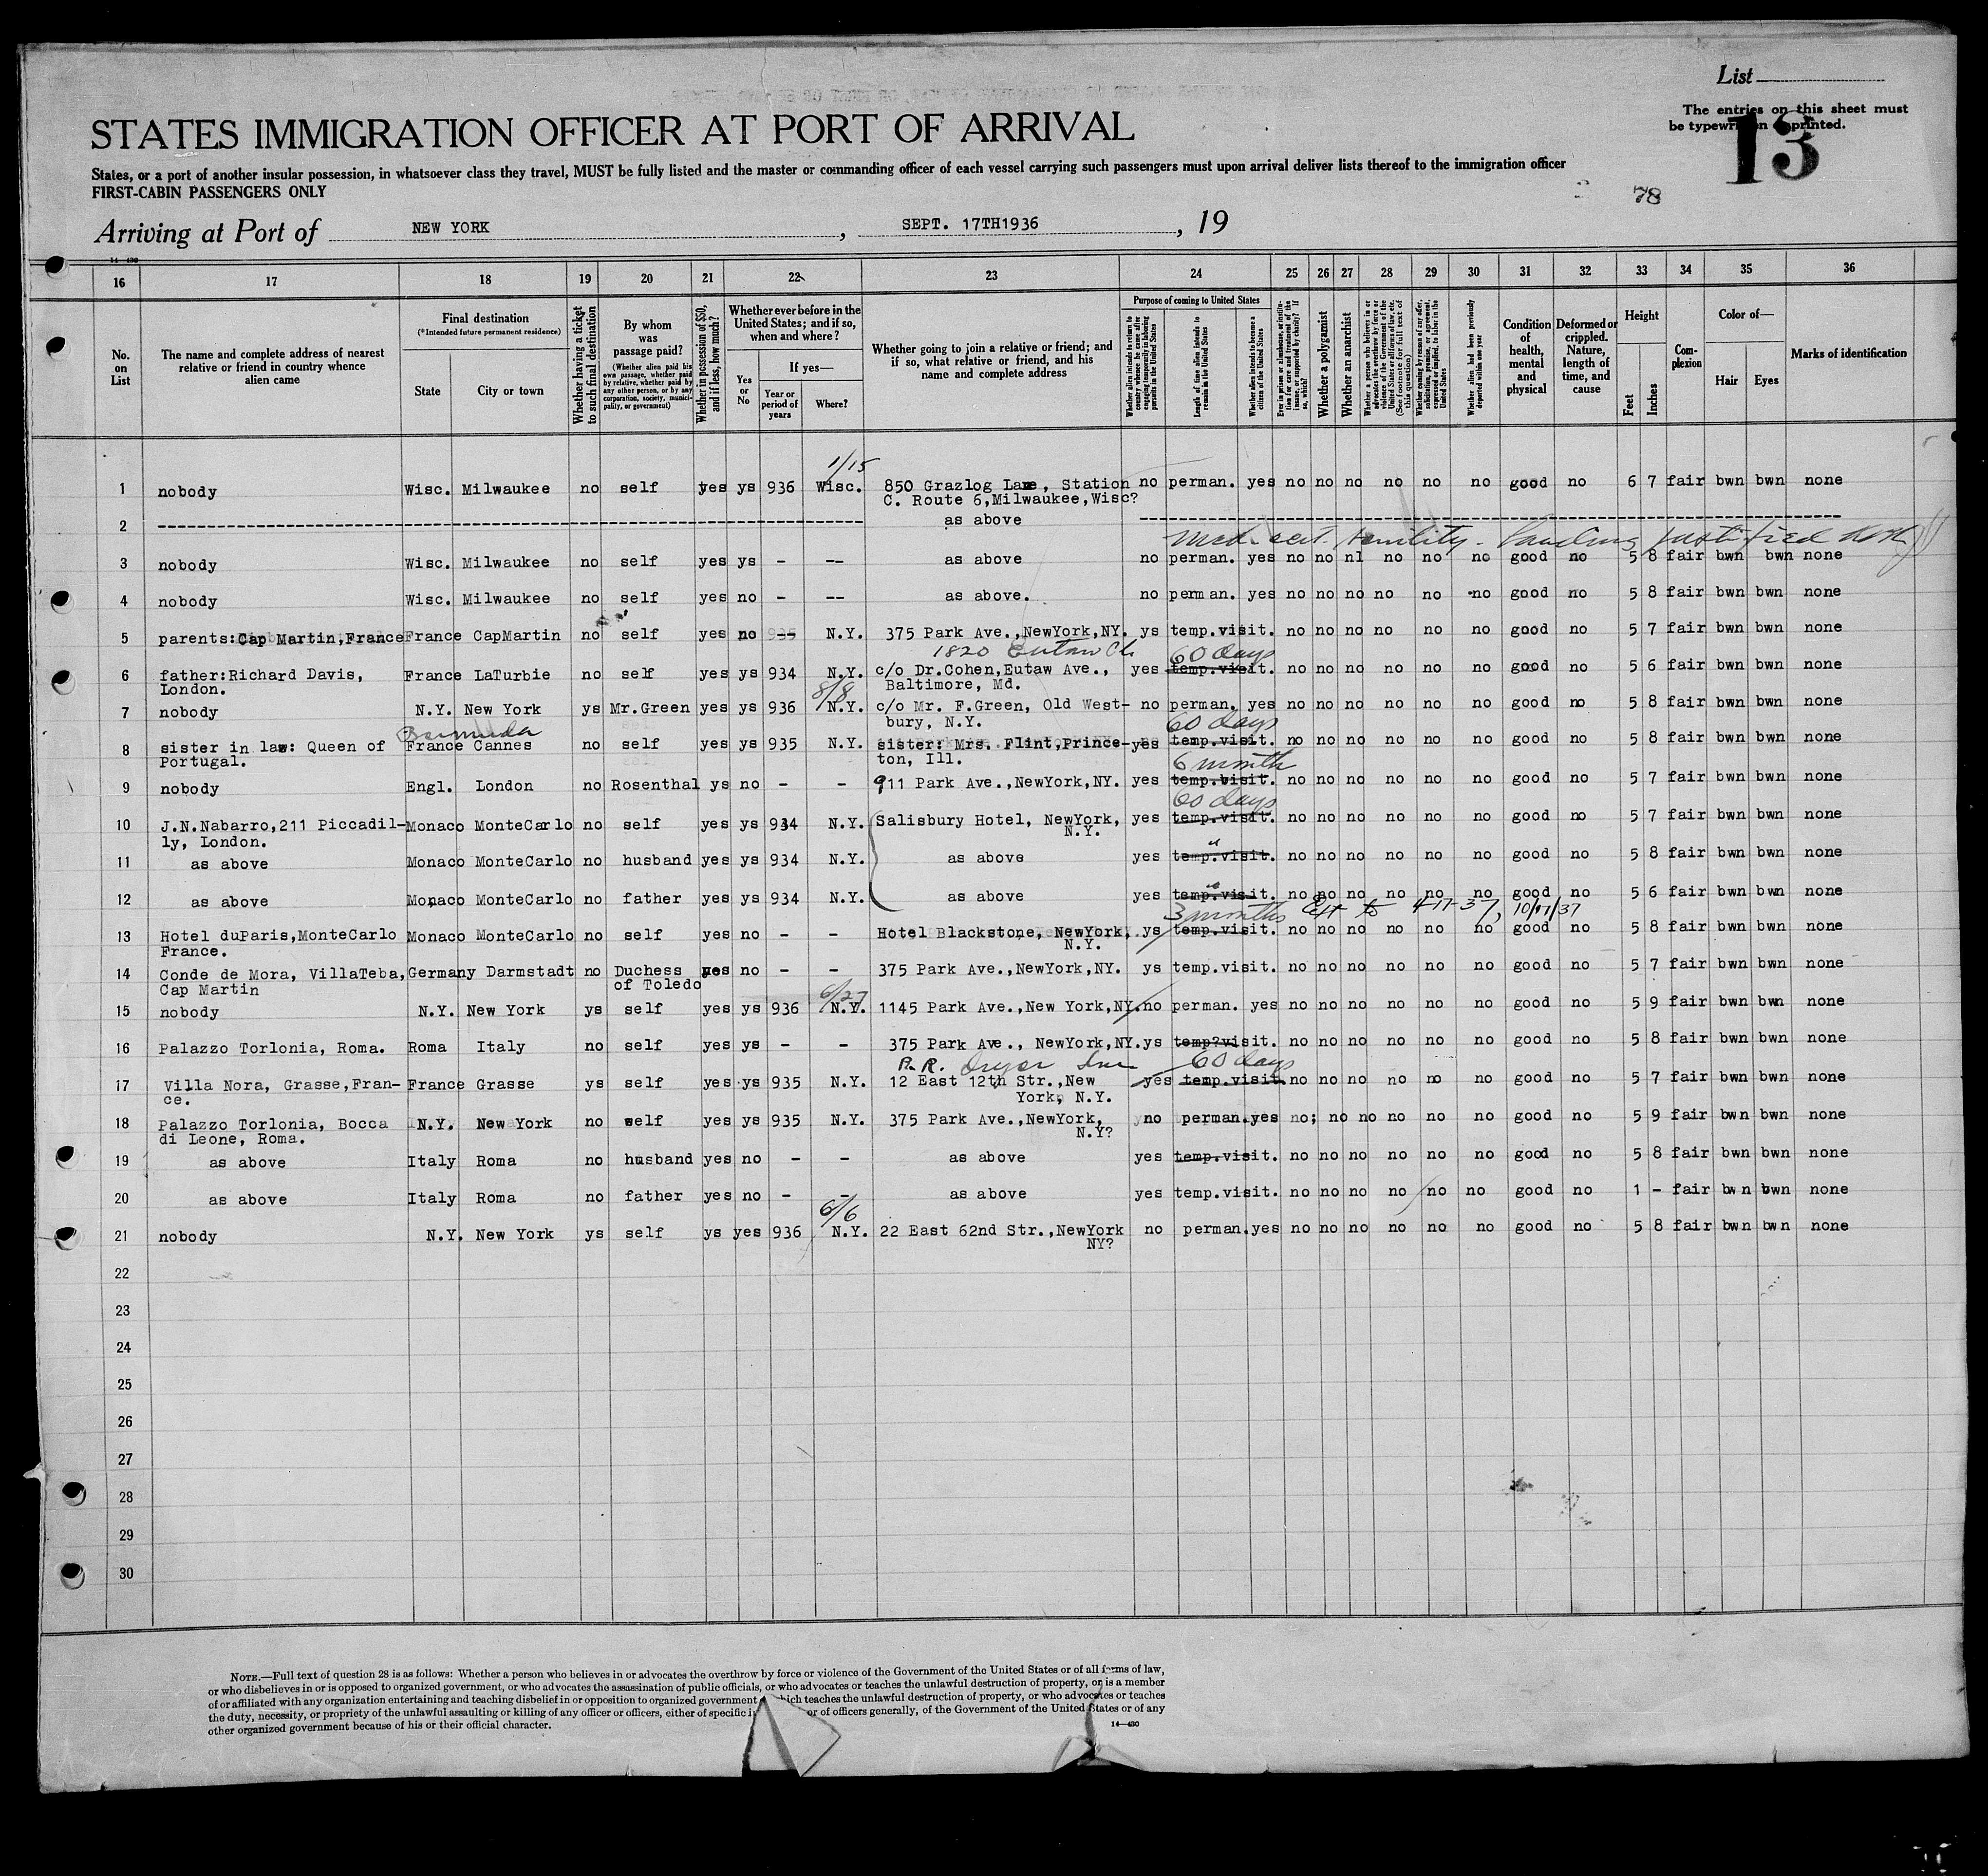 List
The entries on this sheet must
be typewritten or printed.
13
STATES IMMIGRATION OFFICER AT PORT OF ARRIVAL
States, or a port of another insular possession, in whatsoever class they travel, MUST be fully listed and the master or commanding officer of each vessel carrying such passengers must upon arrival deliver lists thereof to the immigration officer
FIRST-CABIN PASSENGERS ONLY
78
Arriving at Port of NEW YORK , SEPT. 17TH1936 , 19
14—430
16 17 18 19 20 21 22 23 24 25 26 27 28 29 30 31 32 33 34 35 36
No. on List
The name and complete address of nearest relative or friend in country whence alien came
Final destination
(*Intended future permanent residence)
State
City or town
Whether having a ticket to such final destination
By whom was passage paid?
(Whether alien paid his own passage, whether paid by relative, whether paid by any other person, or by any corporation, society, municipality, or government)
Whether in possession of $50, and if less, how much?
Whether ever before in the United States; and if so, when and where?
Yes or No
If yes—
Year or period of years
Where?
Whether going to join a relative or friend; and if so, what relative or friend, and his name and complete address
Purpose of coming to United States
Whether alien intends to return to country whence he came after engaging temporarily in laboring pursuits in the United States
Length of time alien intends to remain in the United States
Whether alien intends to become a citizen of the United States
Ever in prison or almshouse, or institution for care and treatment of the insane, or supported by charity? If so, which?
Whether a polygamist
Whether an anarchist
Whether a person who believes in or advocates the overthrow by force or violence of the Government of the United States or all forms of law, etc. (See footnote for full text of this question)
Whether coming by reason of any offer, solicitation, promise, or agreement, expressed or implied, to labor in the United States
Whether alien had been previously deported within one year
Condition of health, mental and physical
Deformed or crippled. Nature, length of time, and cause
Height
Feet
Inches
Complexion
Color of—
Hair
Eyes
Marks of identification
1/15
1 nobody Wisc. Milwaukee no self yes ys 936 Wisc. 850 Grazlog Lane, Station no perman. yes no no no no no no good no 6 7 fair bwn bwn none
C. Route 6,Milwaukee,Wisc?
2 as above
Med. cert. senility. Landing justified
3 nobody Wisc. Milwaukee no self yes ys - -- as above no perman. yes no no nl no no no good no 5 8 fair bwn bwn none
4 nobody Wisc. Milwaukee no self yes no - -- as above. no perman. yes no no no no no no good no 5 8 fair bwn bwn none
5 parents:Cap Martin,France France CapMartin no self yes no -- N.Y. 375 Park Ave.,NewYork,NY. ys temp.visit. no no no no no no good no 5 7 fair bwn bwn none
1820 Eutaw 60 days
6 father:Richard Davis, France LaTurbie no self yes ys 934 N.Y. c/o Dr.Cohen,Eutaw Ave., yes temp.visit. no no no no no no good no 5 6 fair bwn bwn none
London. Baltimore, Md.
8/8
7 nobody N.Y. New York ys Mr.Green yes ys 936 N.Y. c/o Mr. F.Green, Old West- no perman. yes no no no no no no good no 5 8 fair bwn bwn none
bury, N.Y.
Bermuda 60 days
8 sister in law: Queen of France Cannes no self yes ys 935 N.Y. sister: Mrs. Flint,Prince- yes temp.visit. no no no no no no good no 5 8 fair bwn bwn none
Portugal. ton, Ill.
6 month
9 nobody Engl. London no Rosenthal ys no - - 911 Park Ave.,NewYork,NY. yes temp.visit. no no no no no no good no 5 7 fair bwn bwn none
60 days
10 J.N.Nabarro,211 Piccadil- Monaco MonteCarlo no self yes ys 934 N.Y. Salisbury Hotel, NewYork, yes temp.visit. no no no no no no good no 5 7 fair bwn bwn none
ly, London. N.Y.
11 as above Monaco MonteCarlo no husband yes ys 934 N.Y. as above yes temp.visit. no no no no no no good no 5 8 fair bwn bwn none
12 as above Monaco MonteCarlo no father yes ys 934 N.Y. as above yes temp.visit. no no no no no no good no 5 6 fair bwn bwn none
3 months Ext to 4-17-37, 10/17/37
13 Hotel duParis,MonteCarlo Monaco MonteCarlo no self yes no - - Hotel Blackstone, NewYork, ys temp.visit. no no no no no no good no 5 8 fair bwn bwn none
France. N.Y.
14 Conde de Mora, VillaTeba, Germany Darmstadt no Duchess yes no - - 375 Park Ave.,NewYork,NY. ys temp.visit. no no no no no no good no 5 7 fair bwn bwn none
Cap Martin of Toledo
6/27
15 nobody N.Y. New York ys self yes ys 936 N.Y. 1145 Park Ave.,New York,NY. no perman. yes no no no no no no good no 5 9 fair bwn bwn none
16 Palazzo Torlonia, Roma. Roma Italy no self yes ys - - 375 Park Ave., NewYork,NY. ys temp?visit. no no no no no no good no 5 8 fair bwn bwn none
B.R. Dryer Inc 60 days
17 Villa Nora, Grasse,Fran- France Grasse ys self yes ys 935 N.Y. 12 East 12th Str.,New yes temp.visit no no no no no no good no 5 7 fair bwn bwn none
ce. York, N.Y.
18 Palazzo Torlonia, Bocca N.Y. New York no self yes ys 935 N.Y. 375 Park Ave.,NewYork, no perman.yes no; no no no no no good no 5 9 fair bwn bwn none
di Leone, Roma. N.Y?
19 as above Italy Roma no husband yes no - - as above yes temp.visit. no no no no no no good no 5 8 fair bwn bwn none
20 as above Italy Roma no father yes no - - as above yes temp.visit. no no no no no no good no 1 - fair bwn bwn none
6/6
21 nobody N.Y. New York ys self ys yes 936 N.Y. 22 East 62nd Str.,NewYork no perman.yes no no no no no no good no 5 8 fair bwn bwn none
NY?
22
23
24
25
26
27
28
29
30
NOTE.—Full text of question 28 is as follows: Whether a person who believes in or advocates the overthrow by force or violence of the Government of the United States or of all forms of law,
or who disbelieves in or is opposed to organized government, or who advocates the assassination of public officials, or who advocates or teaches the unlawful destruction of property, or is a member
of or affiliated with any organization entertaining and teaching disbelief in or opposition to organized government which teaches the unlawful destruction of property, or who advocates or teaches
the duty, necessity, or propriety of the unlawful assaulting or killing of any officer or officers, either of specific or of officers generally, of the Government of the United States or of any
other organized government because of his or their official character.
14—430